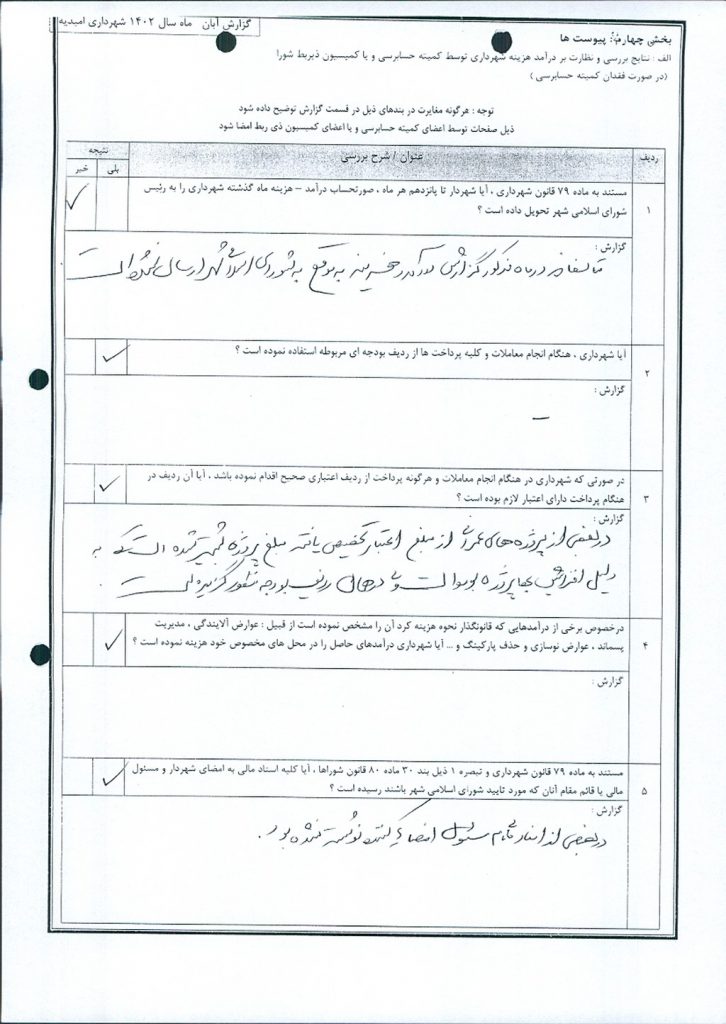 گزارش آبان ماه سال ۱۴۰۲ شهرداری امیدیه
بخش چهارم: پیوست ها
الف : نتایج بررسی و نظارت بر درآمد هزینه شهرداری توسط کمیته حسابرسی و یا کمیسیون ذیربط شورا
(در صورت فقدان کمیته حسابرسی)
توجه : هرگونه مغایرت در بندهای ذیل در قسمت گزارش توضیح داده شود
ذیل صفحات توسط اعضای کمیته حسابرسی و یا اعضای کمیسیون ذی ربط امضا شود
ردیف
عنوان / شرح بررسی
نتیجه
بلی
خیر
۱
مستند به ماده ۷۹ قانون شهرداری ، آیا شهردار تا پانزدهم هر ماه ، صورتحساب درآمد – هزینه ماه گذشته شهرداری را به رئیس
شورای اسلامی شهر تحویل داده است ؟
✓
گزارش :
در ماه مذکور گزارش درآمد هزینه به موقع به شورای اسلامی شهر ارسال نشده است
۲
آیا شهرداری ، هنگام انجام معاملات و کلیه پرداخت ها از ردیف بودجه ای مربوطه استفاده نموده است ؟
✓
گزارش :
–
۳
در صورتی که شهرداری در هنگام انجام معاملات و هرگونه پرداخت از ردیف اعتباری صحیح اقدام نموده باشد ، آیا آن ردیف در
هنگام پرداخت دارای اعتبار لازم بوده است ؟
✓
گزارش :
در بعضی از پروژه های عمرانی از مبلغ اعتبار تخصیص یافته مبلغ پروژه بیشتر شده است که به
دلیل افزایش بهای پروژه بوده است و در ردیف بودجه منظور گردیده است .
۴
درخصوص برخی از درآمدهایی که قانونگذار نحوه هزینه کرد آن را مشخص نموده است از قبیل : عوارض آلایندگی ، مدیریت
پسماند ، عوارض نوسازی و حذف پارکینگ و ... آیا شهرداری درآمدهای حاصل را در محل های مخصوص خود هزینه نموده است ؟
✓
گزارش :
۵
مستند به ماده ۷۹ قانون شهرداری و تبصره ۱ ذیل بند ۳۰ ماده ۸۰ قانون شوراها ، آیا کلیه اسناد مالی به امضای شهردار و مسئول
مالی یا قائم مقام آنان که مورد تایید شورای اسلامی شهر باشند رسیده است ؟
✓
گزارش :
در بعضی از اسناد نام مسئول امضاء کننده نوشته نشده بود .